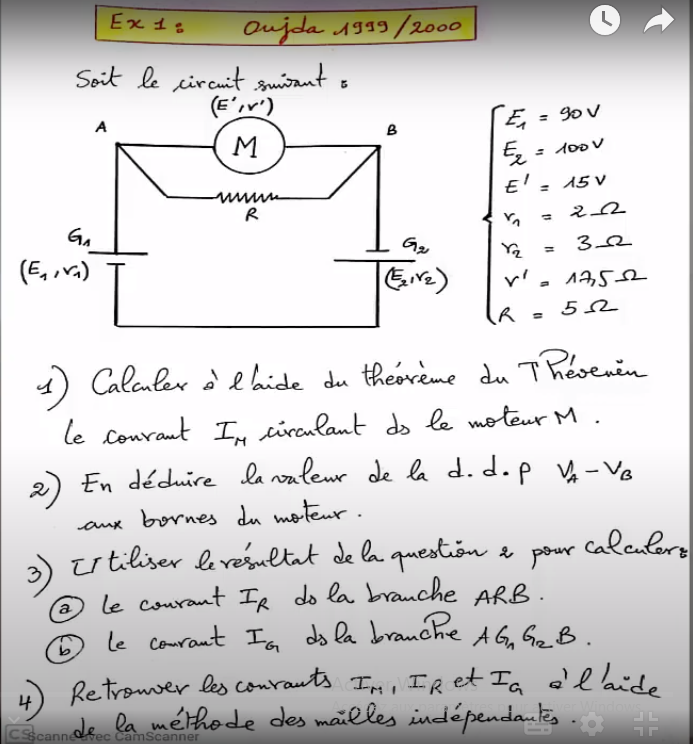 Ex 1 : Oujda 1999/2000
Soit le circuit suivant :
(E', r')
A
B
M
R
G₁
(E₁, r₁)
G₂
(E₂, r₂)
E₁ = 90V
E₂ = 100V
E' = 15V
r₁ = 2Ω
r₂ = 3Ω
r' = 17,5Ω
R = 5Ω
1) Calculer à l'aide du théorème du Thévenin
le courant I_M circulant ds le moteur M.
2) En déduire la valeur de la d.d.p V_A - V_B
aux bornes du moteur.
3) Utiliser le résultat de la question 2 pour calculer:
a le courant I_R ds la branche ARB.
b le courant I_G ds la branche A G₁ G₂ B.
4) Retrouver les courants I_M, I_R et I_G à l'aide
de la méthode des mailles indépendantes.
Activer Windows
CS Scanné avec CamScanner